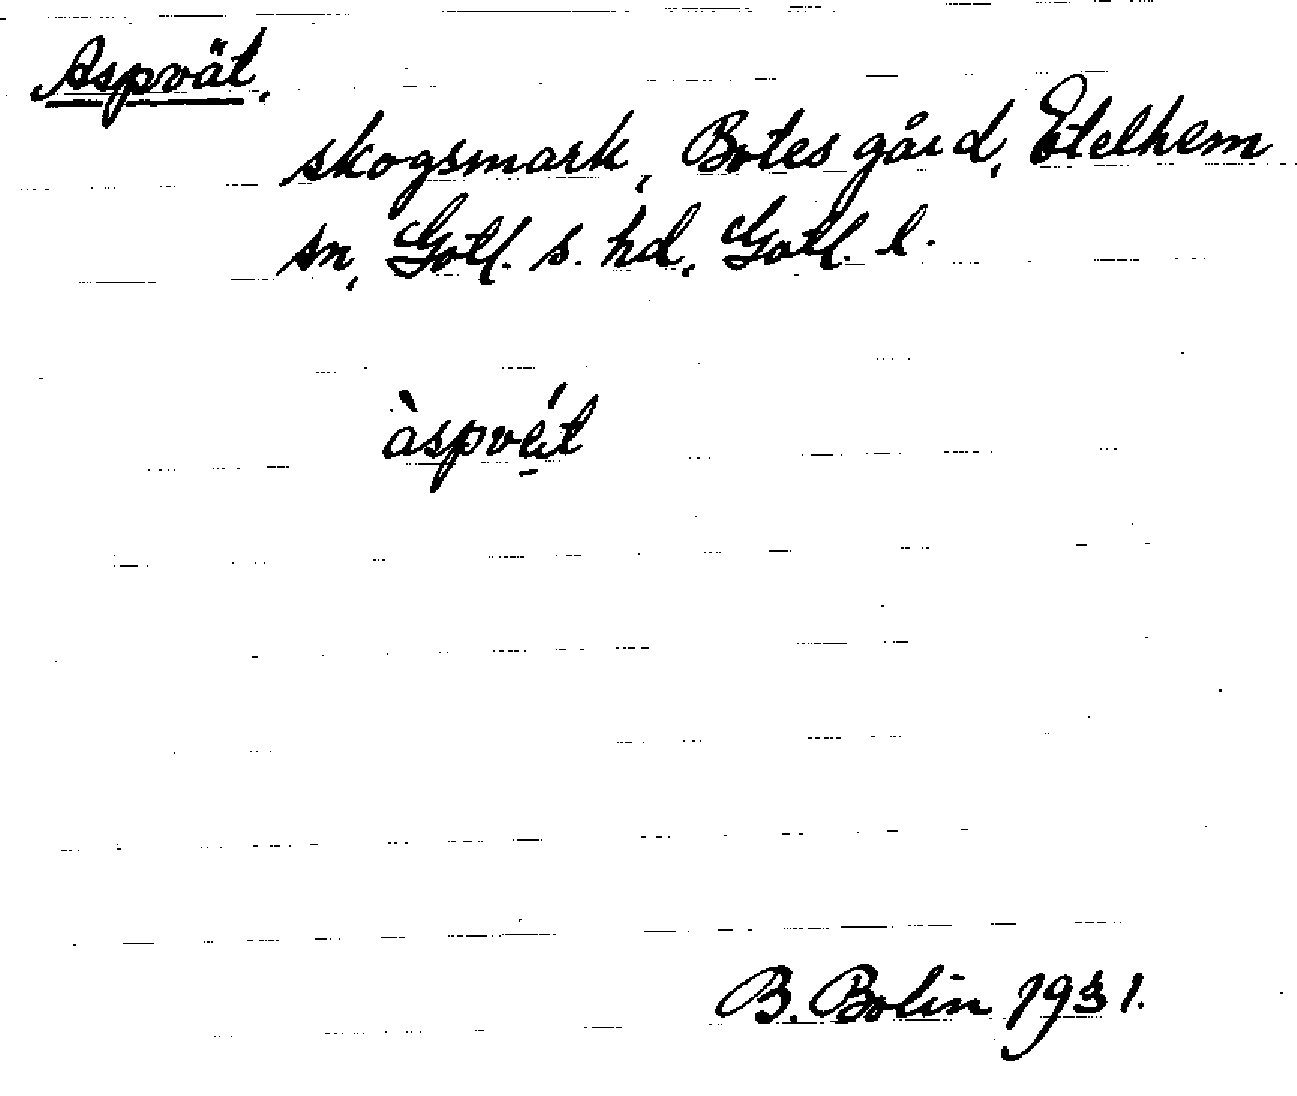 Aspvät.
skogsmark, Botes gård, Etelhem
sn, Gotl. s. hd, Gotl. l.
àspvé̱t
B. Bolin 1931.